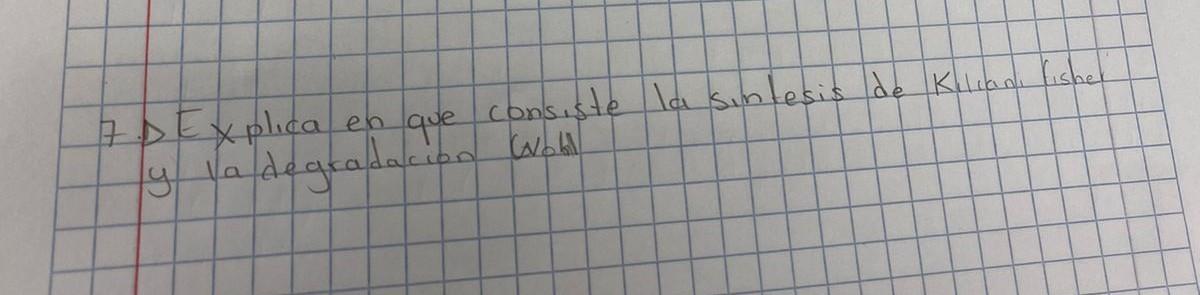 7.D Explica en que consiste la sintesis de Kiliani fisher
y la degradacion Wohl